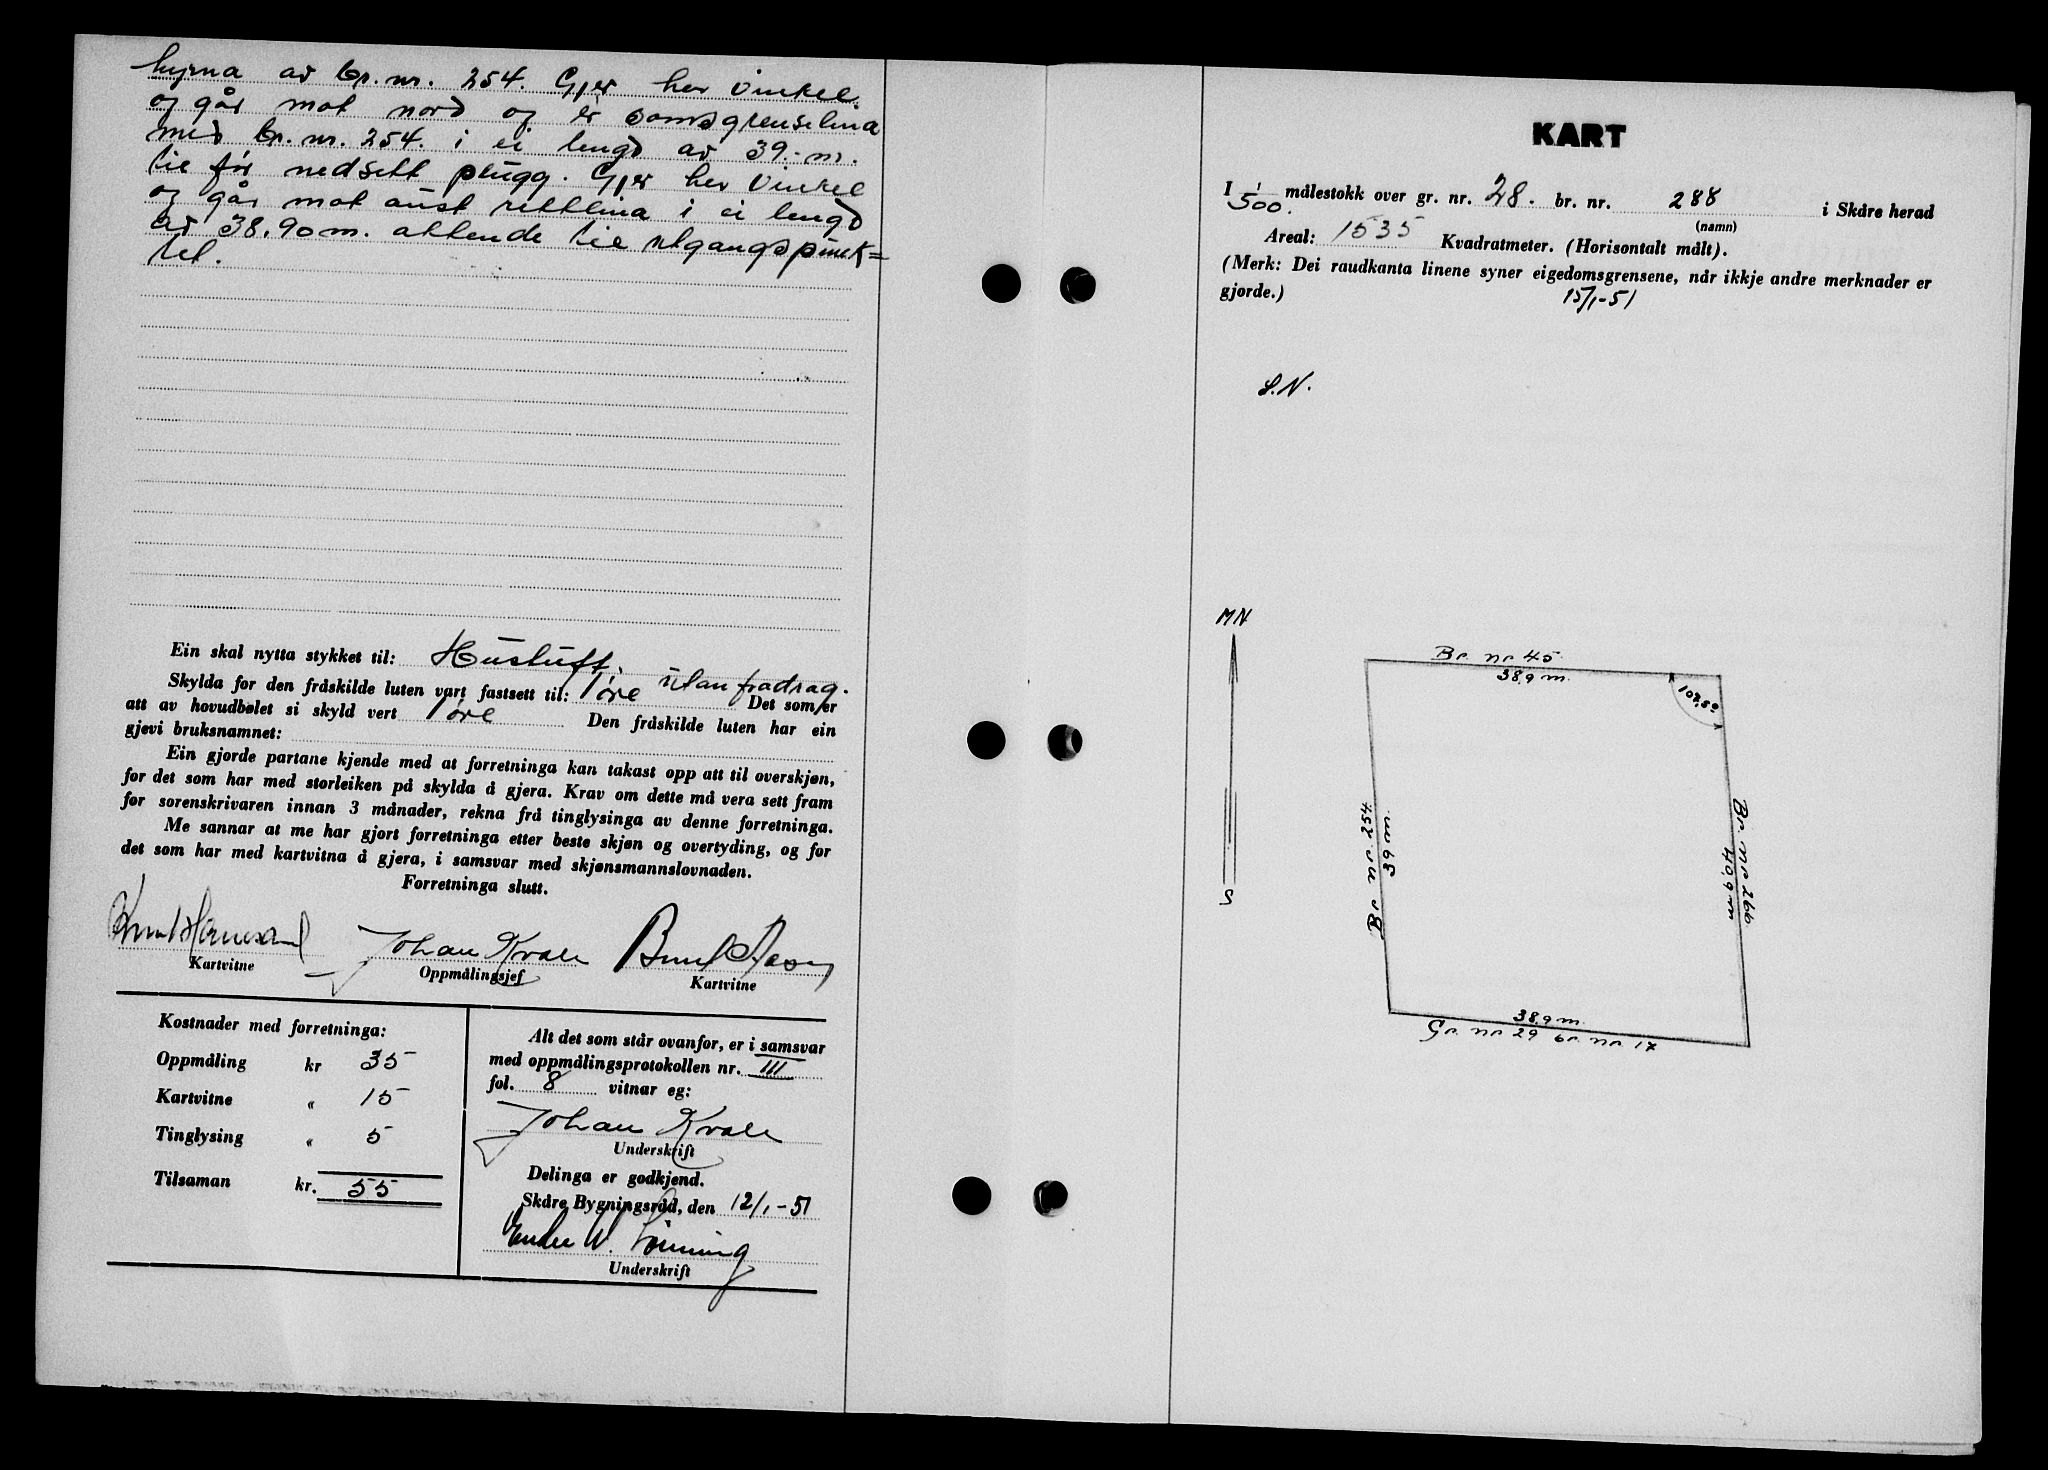 hyrna av br. nr. 254. Gjer her vinkel
og går mot nord og er samsgrenselina
med br. nr. 254. i ei lengd av 39.- m.
til før nedsett plugg. Gjer her vinkel
og går mot aust rettlina i ei lengd
av 38.90 m. attende til utgangspunk=
tet.
Ein skal nytta stykket til: Hustuft.
Skylda for den fråskilde luten vart fastsett til: 1 øre utan fradrag.
Det som er
att av hovudbølet si skyld vert 1 øre Den fråskilde luten har ein
gjevi bruksnamnet:
Ein gjorde partane kjende med at forretninga kan takast opp att til overskjøn,
for det som har med storleiken på skylda å gjera. Krav om dette må vera sett fram
for sorenskrivaren innan 3 månader, rekna frå tinglysinga av denne forretninga.
Me sannar at me har gjort forretninga etter beste skjøn og overtyding, og for
det som har med kartvitna å gjera, i samsvar med skjønsmannslovnaden.
Forretninga slutt.
Johan Kvale
Kartvitne
Oppmålingsjef
Kartvitne
Kostnader med forretninga:
Oppmåling kr 35
Kartvitne " 15
Tinglysing " 5
Tilsaman kr. 55
Alt det som står ovanfor, er i samsvar
med oppmålingsprotokollen nr. III
fol. 8 vitnar eg:
Johan Kvale
Underskrift
Delinga er godkjend.
Skåre Bygningsråd, den 12/1-51
W. Lønning
Underskrift
KART
I 1/500. målestokk over gr. nr. 28. br. nr. 288 i Skåre herad
(namn)
Areal: 1535 Kvadratmeter. (Horisontalt målt).
(Merk: Dei raudkanta linene syner eigedomsgrensene, når ikkje andre merknader er
gjorde.)
15/1-51
S.N.
MN
S
Br. nr 45
38,9 m.
Br nr 254
39 m.
Br. nr 266
40,9 m
38,9 m.
Gr. nr 29 br. nr 17